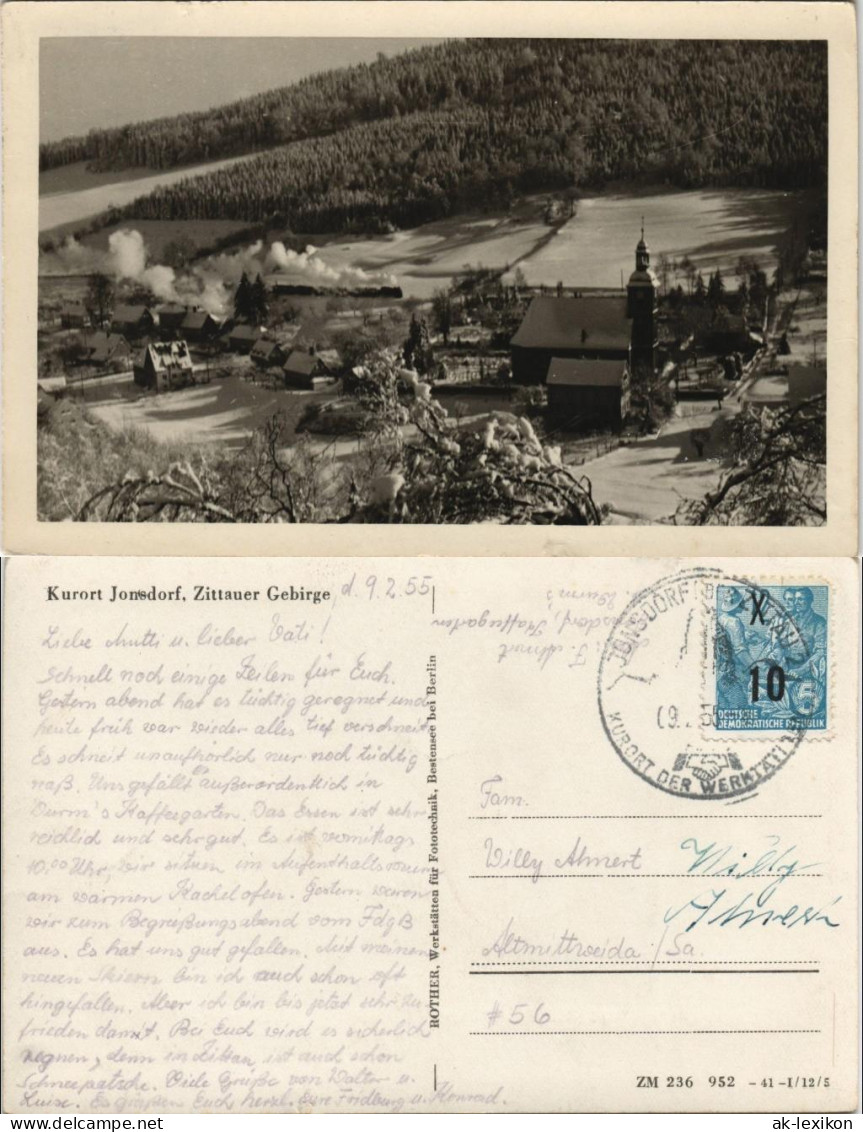 Kurort Jonsdorf, Zittauer Gebirge
d. 9.2.55
Liebe Mutti u. lieber Vati!
Schnell noch einige Zeilen für Euch.
Gestern abend hat es tüchtig geregnet und
heute früh war wieder alles tief verschneit
Es schneit unaufhörlich nur noch tüchtig
naß. Uns gefällt es außerordentlich in
Durm's Kaffeegarten. Das Essen ist sehr
reichlich und sehr gut. Es ist vormittags
10,00 Uhr, wir sitzen im Aufenthaltsraum
am warmen Kachelofen. Gestern waren
wir zum Begrüßungsabend vom FdgB
aus. Es hat uns gut gefallen. Mit meinen
neuen Skiern bin ich auch schon oft
hingefallen. Aber ich bin bis jetzt sehr zu
frieden damit. Bei Euch wird es sicherlich
regnen, denn in Zittau ist auch schon
Schneepatsche. Viele Grüße von Walter u.
Luise. Es grüßen Euch herzl. Eure Friedburg u. Konrad.
ROTHER, Werkstätten für Fototechnik, Bestensee bei Berlin
Kaffeegarten
JONSDORF
KURORT DER WERKTÄTI
X
10
5
DEUTSCHE
DEMOKRATISCHE REPUBLIK
Fam.
Willy Ahnert
Willy
Ahnert
Altmittweida/Sa.
#56
ZM 236 952 -41-I/12/5
ak-lexikon